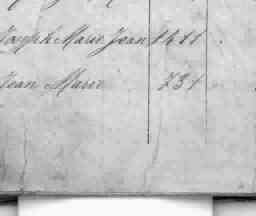 Joseph Marie Jean 1411
Jean Marie 731